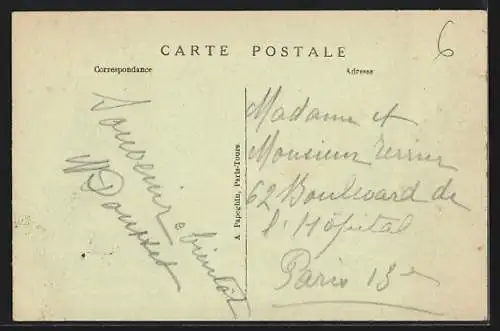 6
CARTE POSTALE
Correspondance
Adresse
Souvenir
a bientôt
A. Papeghin, Paris-Tours
Madame et
Monsieur
62 Boulevard de
l'Hôpital
Paris 13e